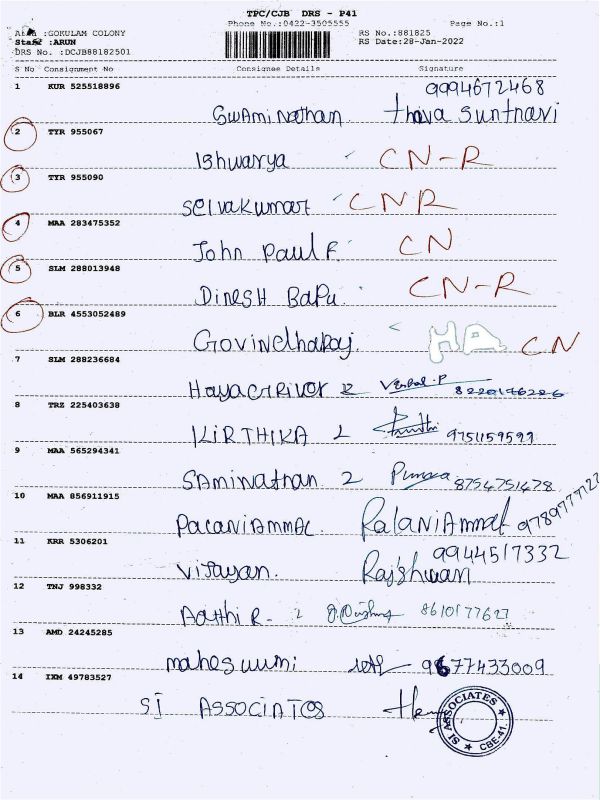 TPC/CJB DRS - P41
Phone No.:0422-3505555 Page No.:1
:GOKULAM COLONY RS No.:881825
Staff :ARUN RS Date:28-Jan-2022
DRS No. :DCJB88182501
S No Consignment No Consignee Details Signature
1 KUR 525518896 9994672468
Swaminathan thava Sunthari
2 TYR 955067
Ishwarya CN-R
3 TYR 955090
Selvakumar CNR
4 MAA 283475352
John Paul F. CN
5 SLM 288013948
Dinesh Bapu. CN-R
6 BLR 4553052489
Govindharaj. CN
7 SLM 288236684
8220146226
8 TRZ 225403638
KIRTHIKA 9751159599
9 MAA 565294341
Saminathan 2 8754751478
10 MAA 856911915
PalaniAmmal PalaniAmmal 9789777127
11 KRR 5306201 9944517332
Vijayan. Rajshwan
12 TNJ 998332
Aathi R- 2 8610177627
13 AMD 24245285
maheswumi 9677433009
14 IXM 49783527
SI ASSOCIATOS
SI ASSOCIATES CBE-41.